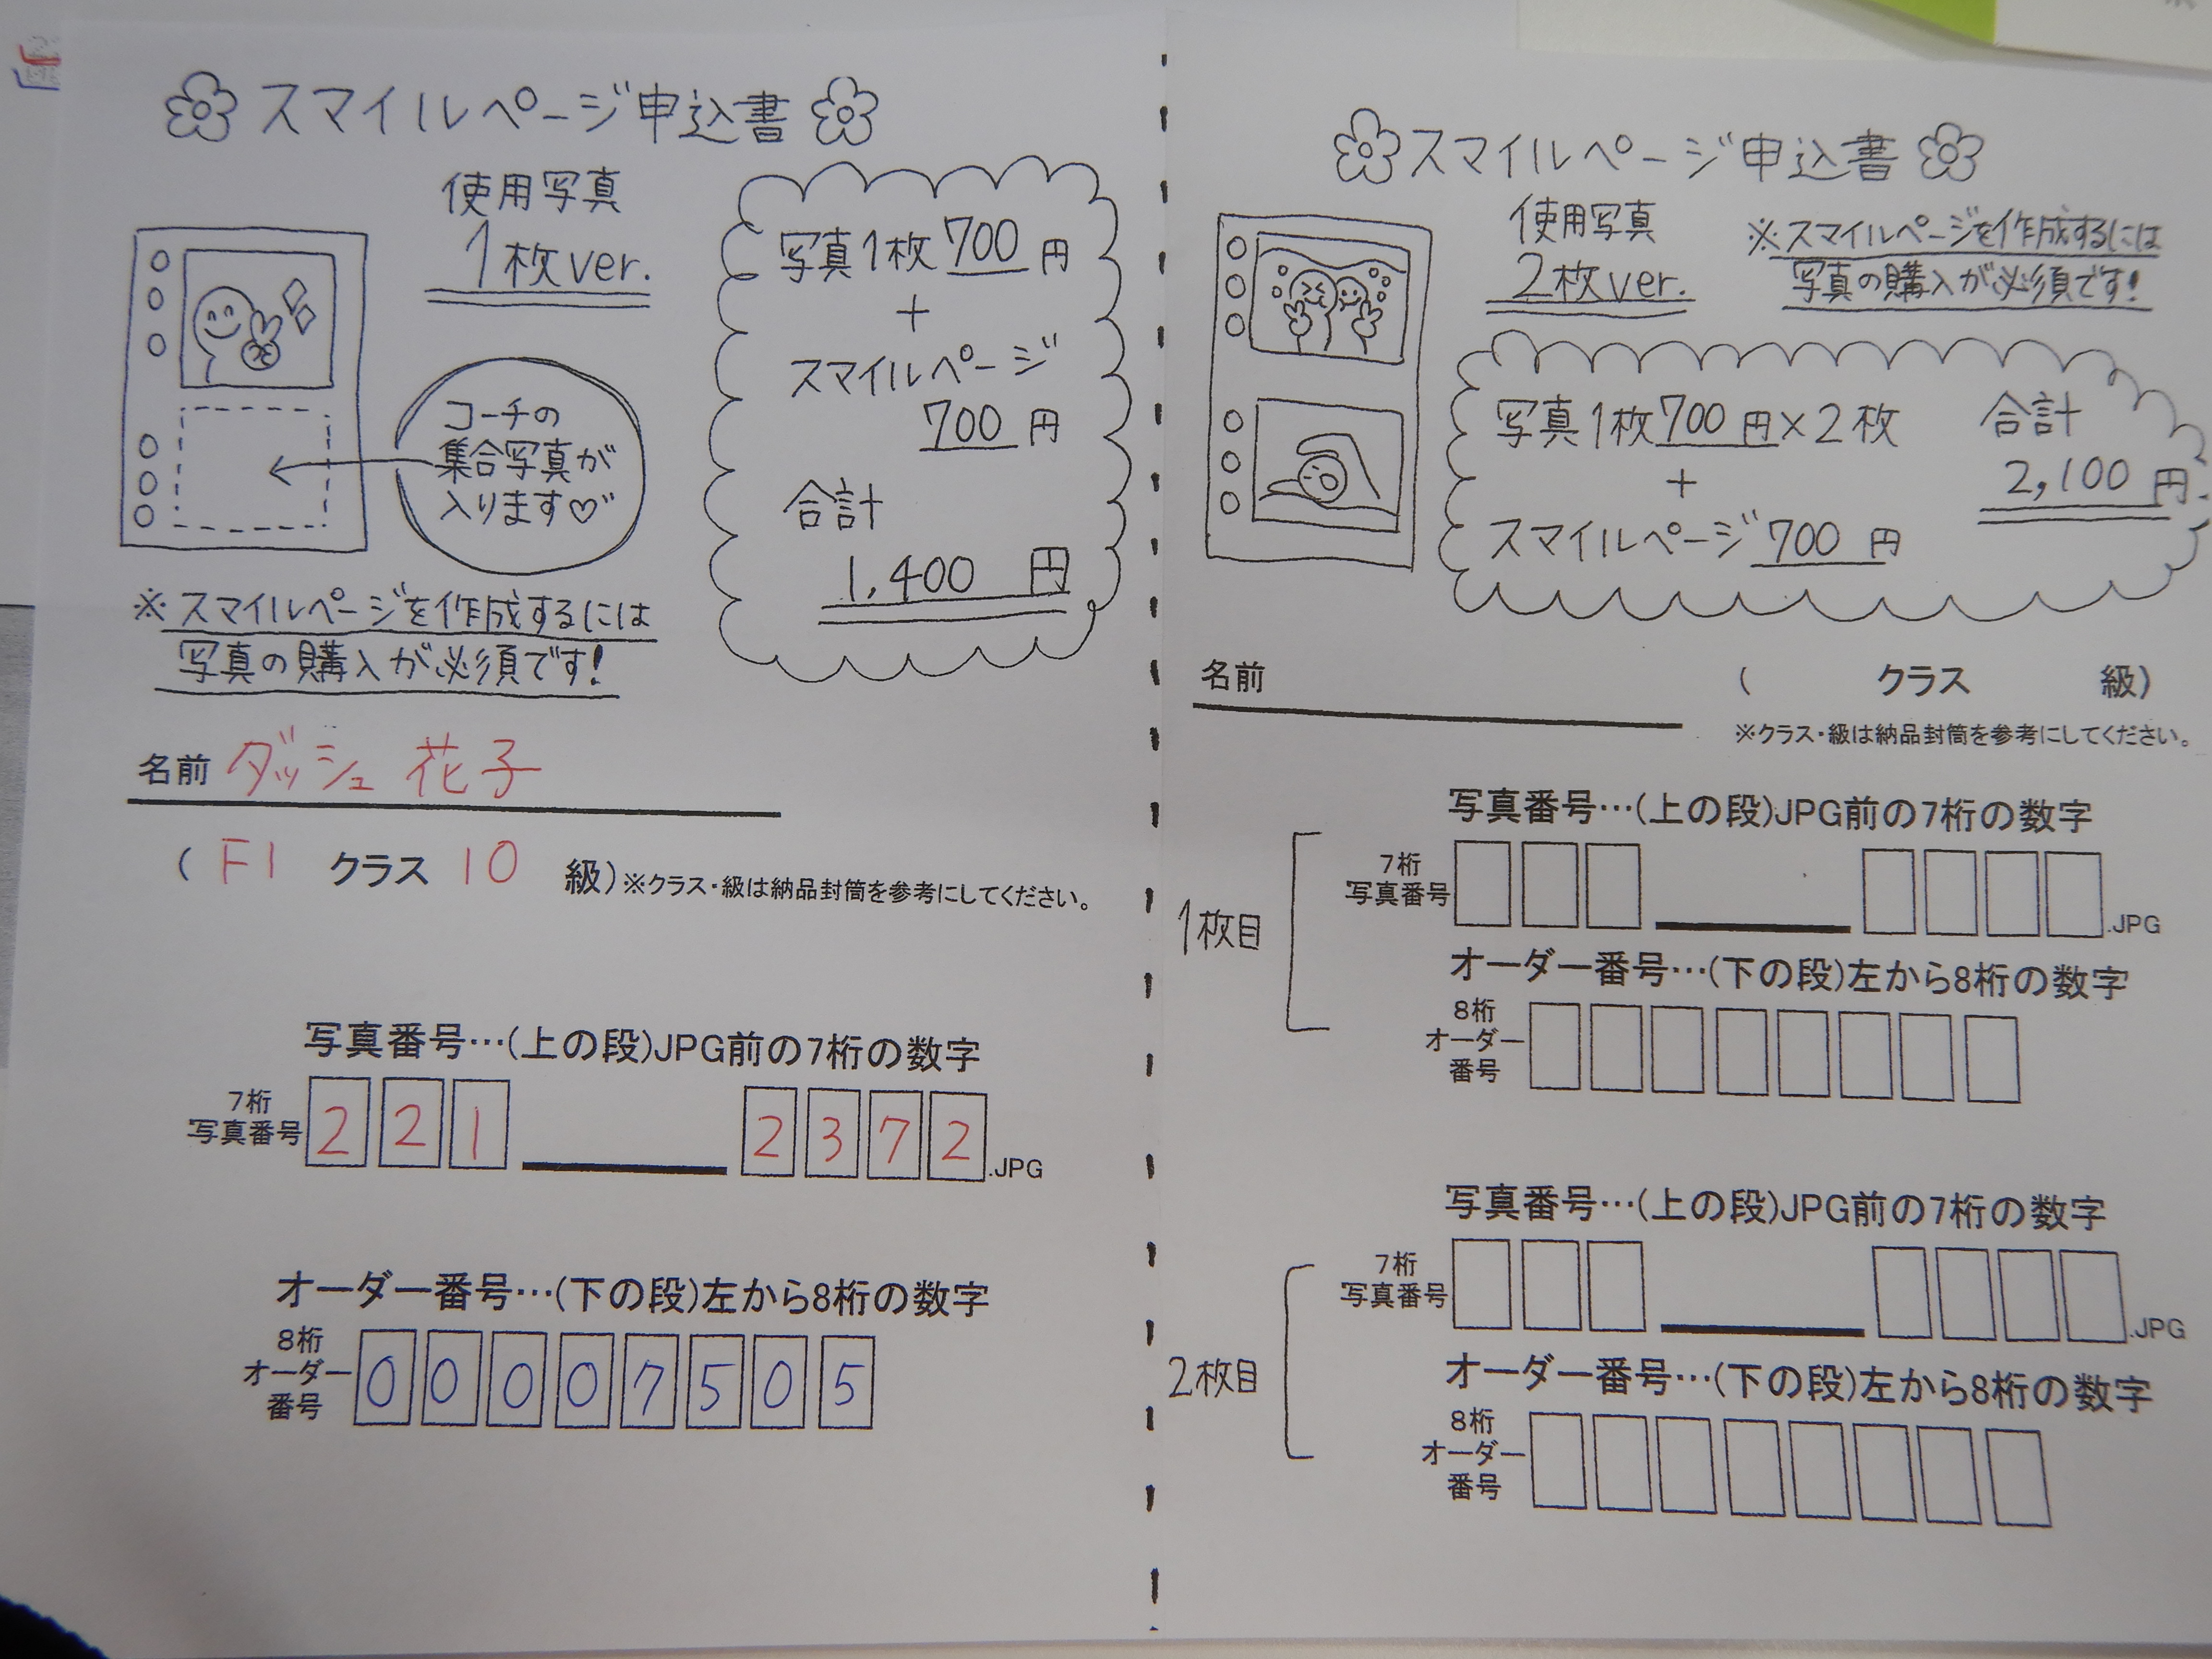 スマイルページ申込書
使用写真
1枚ver.
コーチの
集合写真が
入ります♡
写真1枚700円
+
スマイルページ
700円
合計
1,400円
※スマイルページを作成するには
写真の購入が必須です!
名前 ダッシュ 花子
(F1 クラス 10 級)※クラス・級は納品封筒を参考にしてください。
写真番号…(上の段)JPG前の7桁の数字
7桁
写真番号 2 2 1 2 3 7 2 .JPG
オーダー番号…(下の段)左から8桁の数字
8桁
オーダー
番号
0 0 0 0 7 5 0 5
スマイルページ申込書
使用写真
2枚ver.
※スマイルページを作成するには
写真の購入が必須です!
写真1枚700円×2枚
+
スマイルページ700円
合計
2,100円
名前 ( クラス 級)
※クラス・級は納品封筒を参考にしてください。
1枚目
写真番号…(上の段)JPG前の7桁の数字
7桁
写真番号 .JPG
オーダー番号…(下の段)左から8桁の数字
8桁
オーダー
番号
2枚目
写真番号…(上の段)JPG前の7桁の数字
7桁
写真番号 .JPG
オーダー番号…(下の段)左から8桁の数字
8桁
オーダー
番号